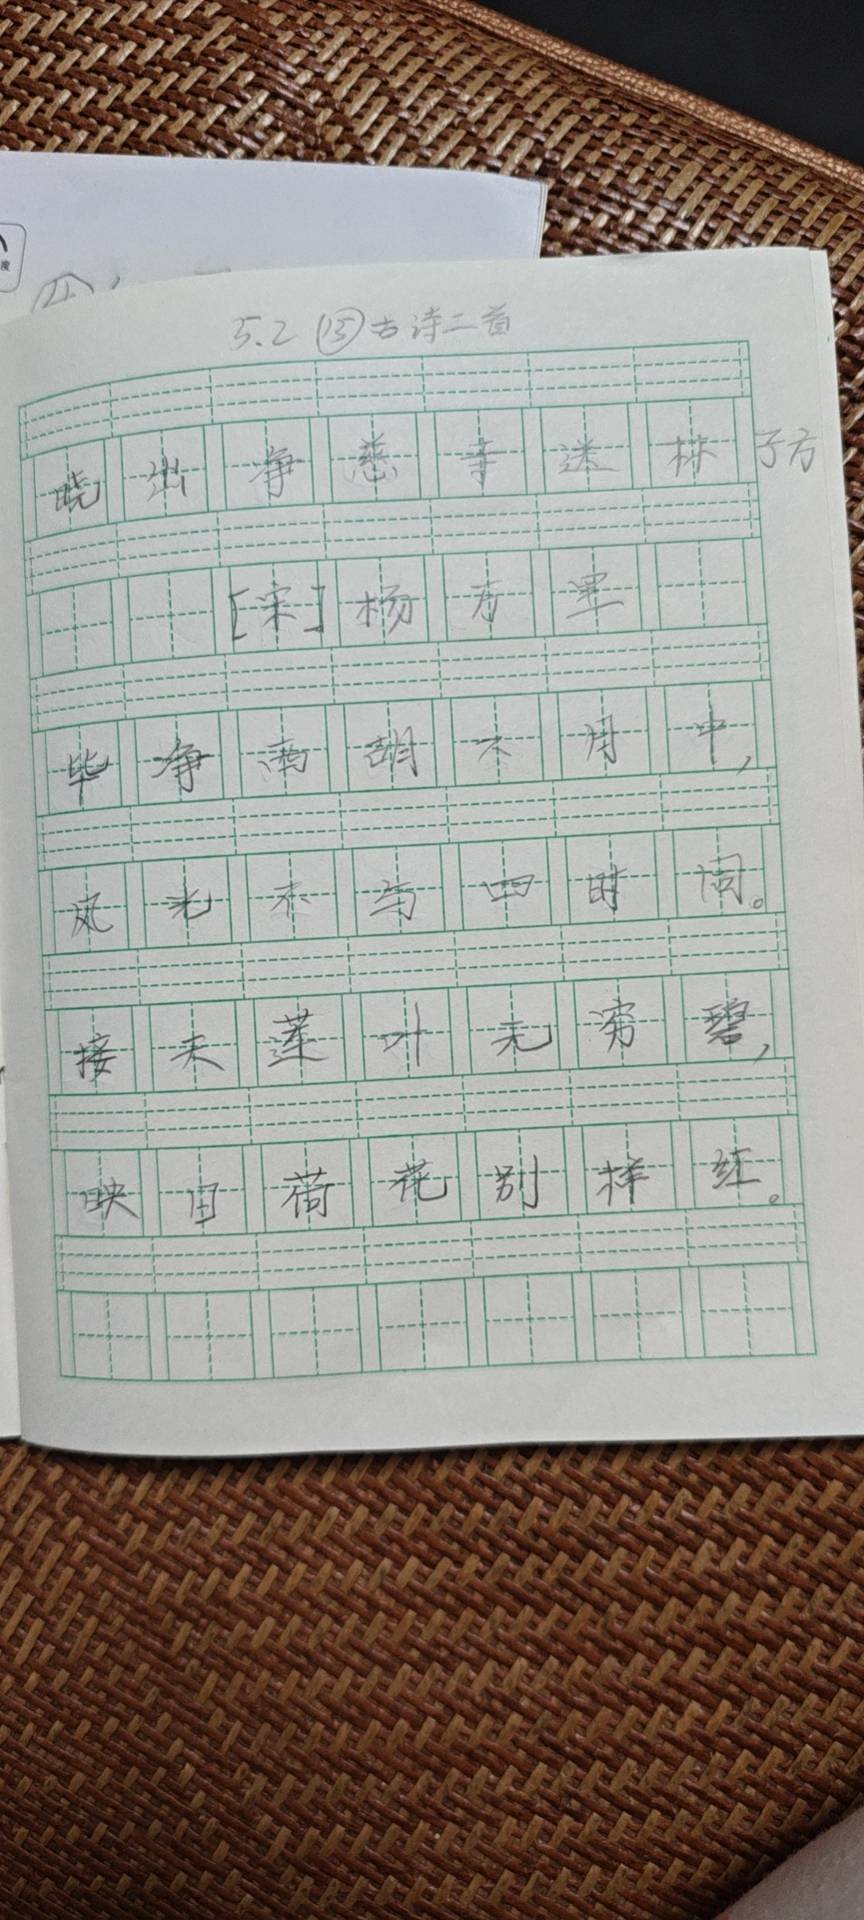 5.2 ⑮古诗二首
晓出净慈寺送林子方
[宋]杨万里
毕净西胡不月中,
风光不与四时同。
接天莲叶无穷碧,
映日荷花别样红。